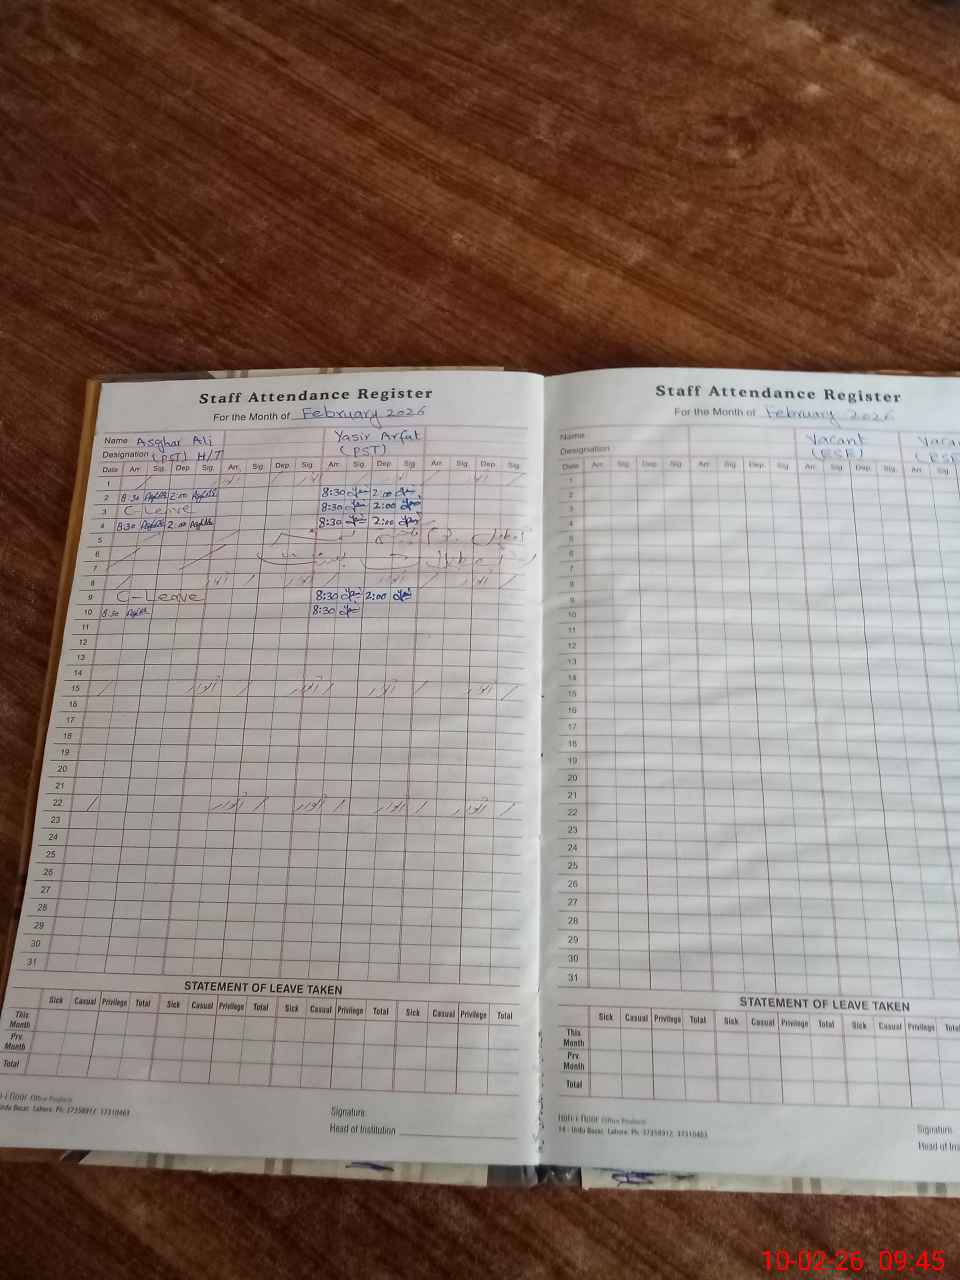 Staff Attendance Register
For the Month of February 2026
Name Asghar Ali Yasir Arfat
Designation (PST) H/T (PST)
Date Arr. Sig. Dep. Sig. Arr. Sig. Dep. Sig. Arr. Sig. Dep. Sig. Arr. Sig. Dep. Sig.
1
2 8:30 2:00 8:30 2:00
3 C-Leave 8:30 2:00
4 8:30 2:00 8:30 2:00
5
6
7
8
9 C-Leave 8:30 2:00
10 8:30 8:30
11
12
13
14
15
16
17
18
19
20
21
22
23
24
25
26
27
28
29
30
31
STATEMENT OF LEAVE TAKEN
Sick Casual Privilege Total Sick Casual Privilege Total Sick Casual Privilege Total Sick Casual Privilege Total
This Month
Prv. Month
Total
Office Products
Urdu Bazar, Lahore. Ph: 37358912, 37310463
Signature
Head of Institution
Staff Attendance Register
For the Month of February 2026
Name Vacant
Designation (ESE)
Date Arr. Sig. Dep. Sig. Arr. Sig. Dep. Sig. Arr. Sig. Dep. Sig. Arr. Sig.
1
2
3
4
5
6
7
8
9
10
11
12
13
14
15
16
17
18
19
20
21
22
23
24
25
26
27
28
29
30
31
STATEMENT OF LEAVE TAKEN
Sick Casual Privilege Total Sick Casual Privilege Total Sick Casual Privilege
This Month
Prv. Month
Total
Office Products
14 - Urdu Bazar, Lahore. Ph: 37358912, 37310463
Signature
Head of Ins
10-02-26 09:45